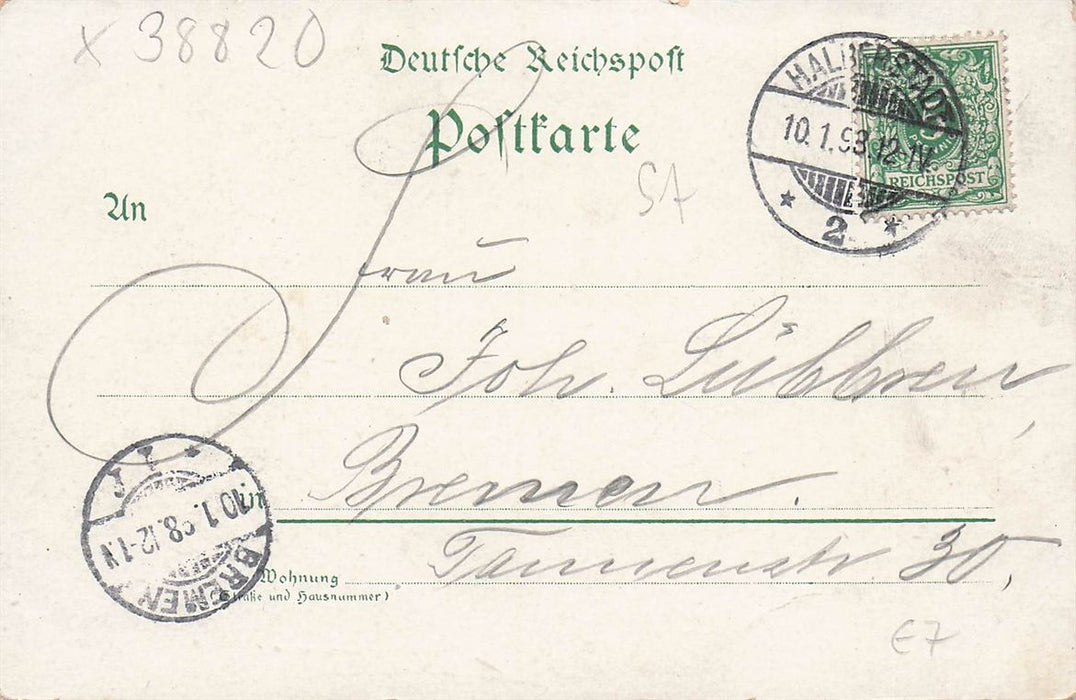 x 38820
Deutsche Reichspost
Postkarte
HALBERSTADT
10.1.98.12-1N.
* 2 *
5
REICHSPOST
St
An
Frau
Joh. Lübben
Bremen.
in
Tannenstr 30,
Wohnung
(Straße und Hausnummer)
BREMEN
10.1.98.12-1N
E7